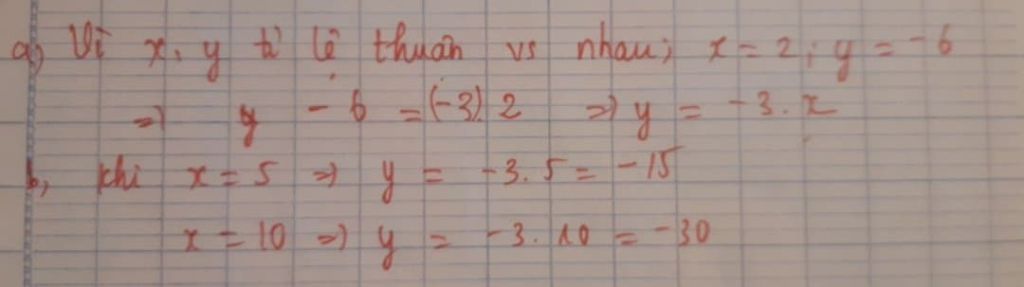 a) Vì x, y tỉ lệ thuận vs nhau; x = 2; y = -6
=> -6 = (-3).2 => y = -3.x
b, khi x = 5 => y = -3.5 = -15
x = 10 => y = -3.10 = -30